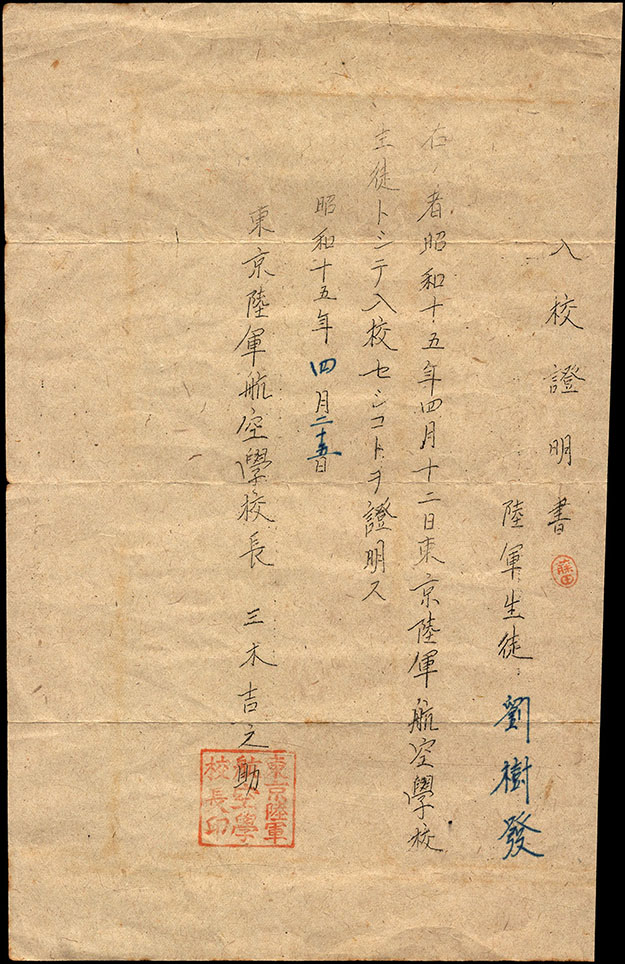 入校證明書
藤田
陸軍生徒 劉樹發
右ノ者昭和十五年四月十二日東京陸軍航空學校
生徒トシテ入校セシコトヲ證明ス
昭和十五年四月二十五日
東京陸軍航空學校長 三木吉之助
東京陸軍
航空學
校長印